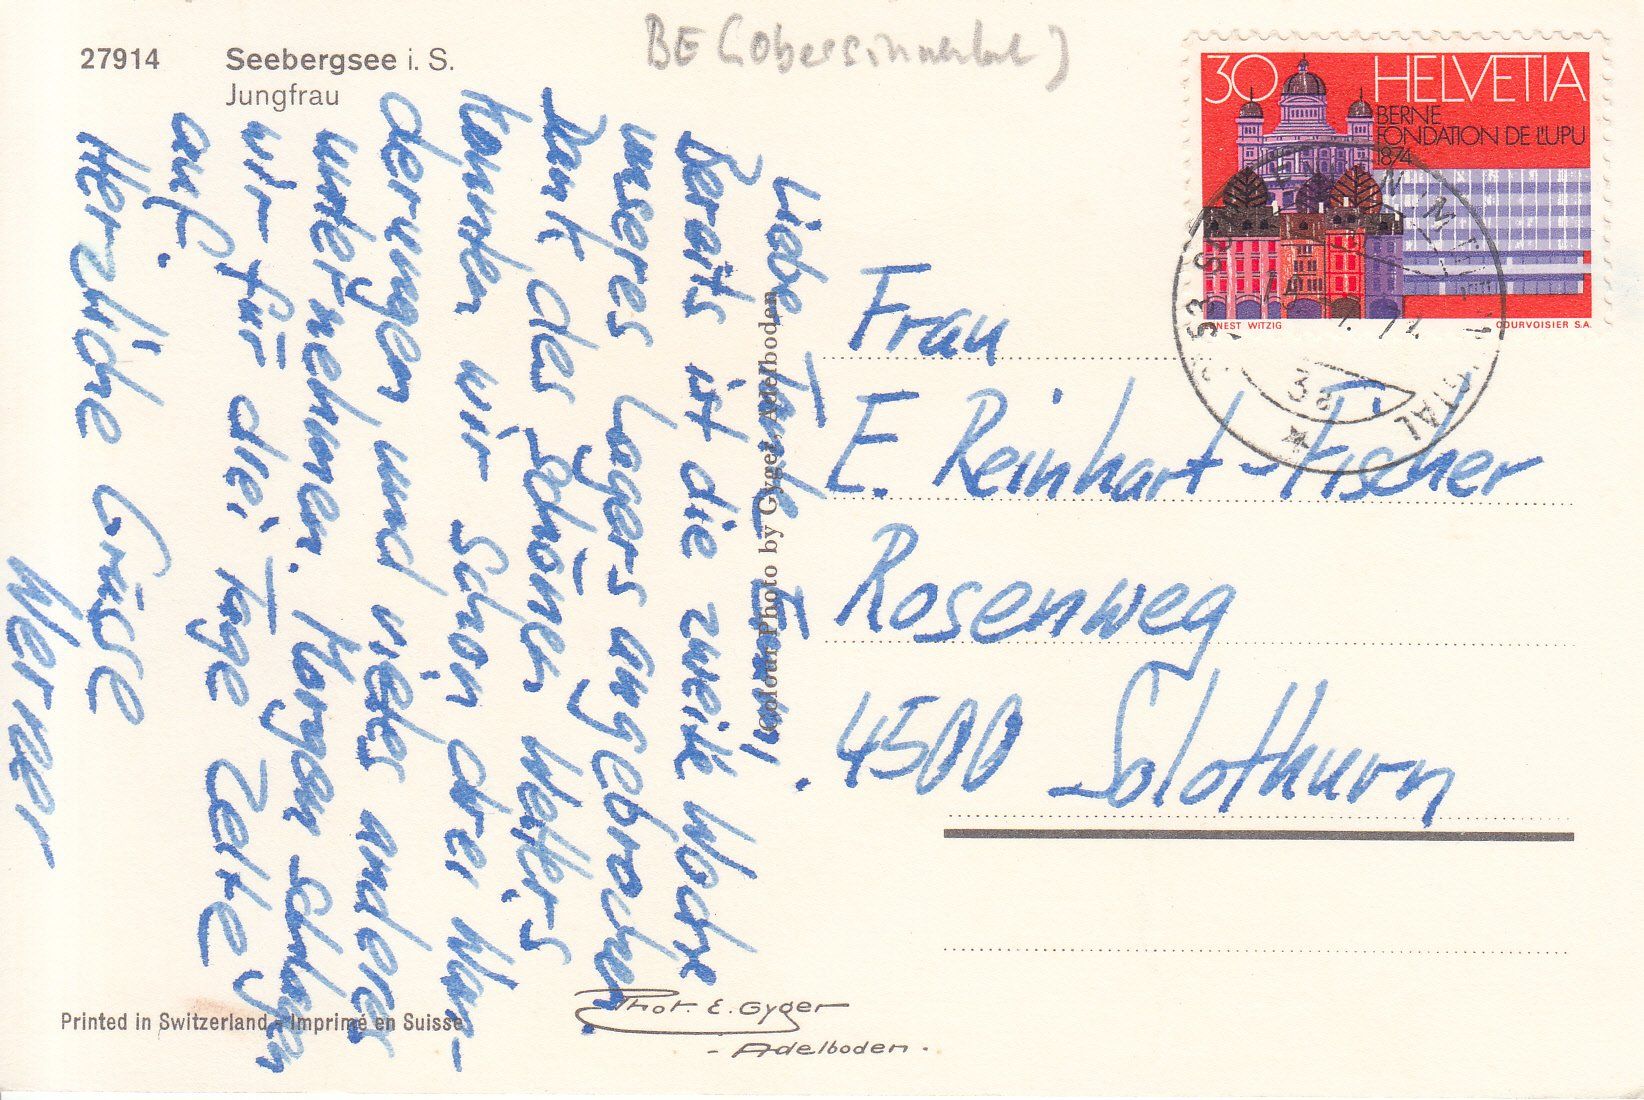 27914 Seebergsee i. S.
Jungfrau
BE (Obersimmental)
30 HELVETIA
BERNE
FONDATION DE L'UPU
1874
ERNEST WITZIG COURVOISIER S.A.
Liebe Tante Emmi
Bereits ist die zweite Woche
unseres Lagers angebrochen.
Dank des schönen Wetters
konnten wir schon drei Wan-
derungen und vieles anderes
unternehmen. Morgen schlagen
wir für drei Tage Zelte
auf.
Herzliche Grüsse
Werner
Colour Photo by Gyger, Adelboden
Frau
E. Reinhart-Fischer
Rosenweg
4500 Solothurn
Phot. E. Gyger
- Adelboden.
Printed in Switzerland - Imprimé en Suisse